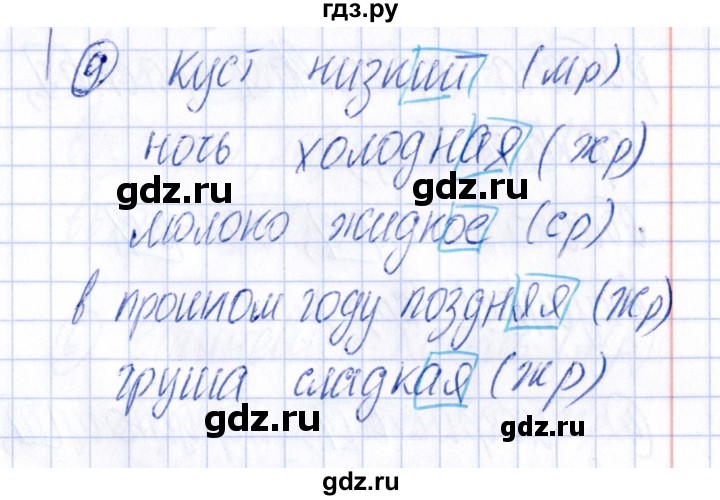 гдз.ру
9 куст низкий (мр)
ночь холодная (жр)
gdz.ru gdz.ru
молоко жидкое (ср).
в прошлом году поздняя (жр)
груша сладкая (жр)
gdz.ru gdz.ru
gdz.ru